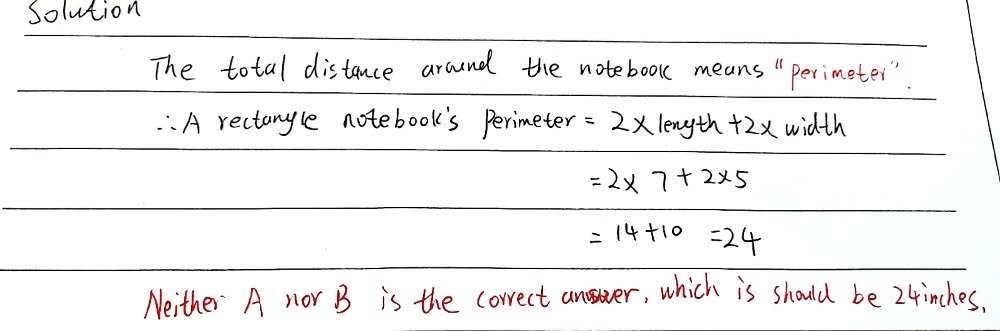 Solution
The total distance around the notebook means "perimeter".
∴ A rectangle notebook's perimeter = 2 x length + 2 x width
= 2 x 7 + 2 x 5
= 14 + 10 = 24
Neither A nor B is the correct answer, which is should be 24 inches.